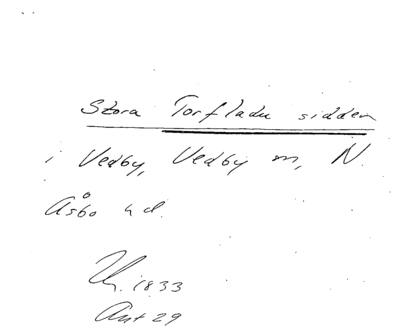 Stora Torfladu sidden
i Vedby, Vedby m, N.
Åsbo hd.
1833
Ant 29